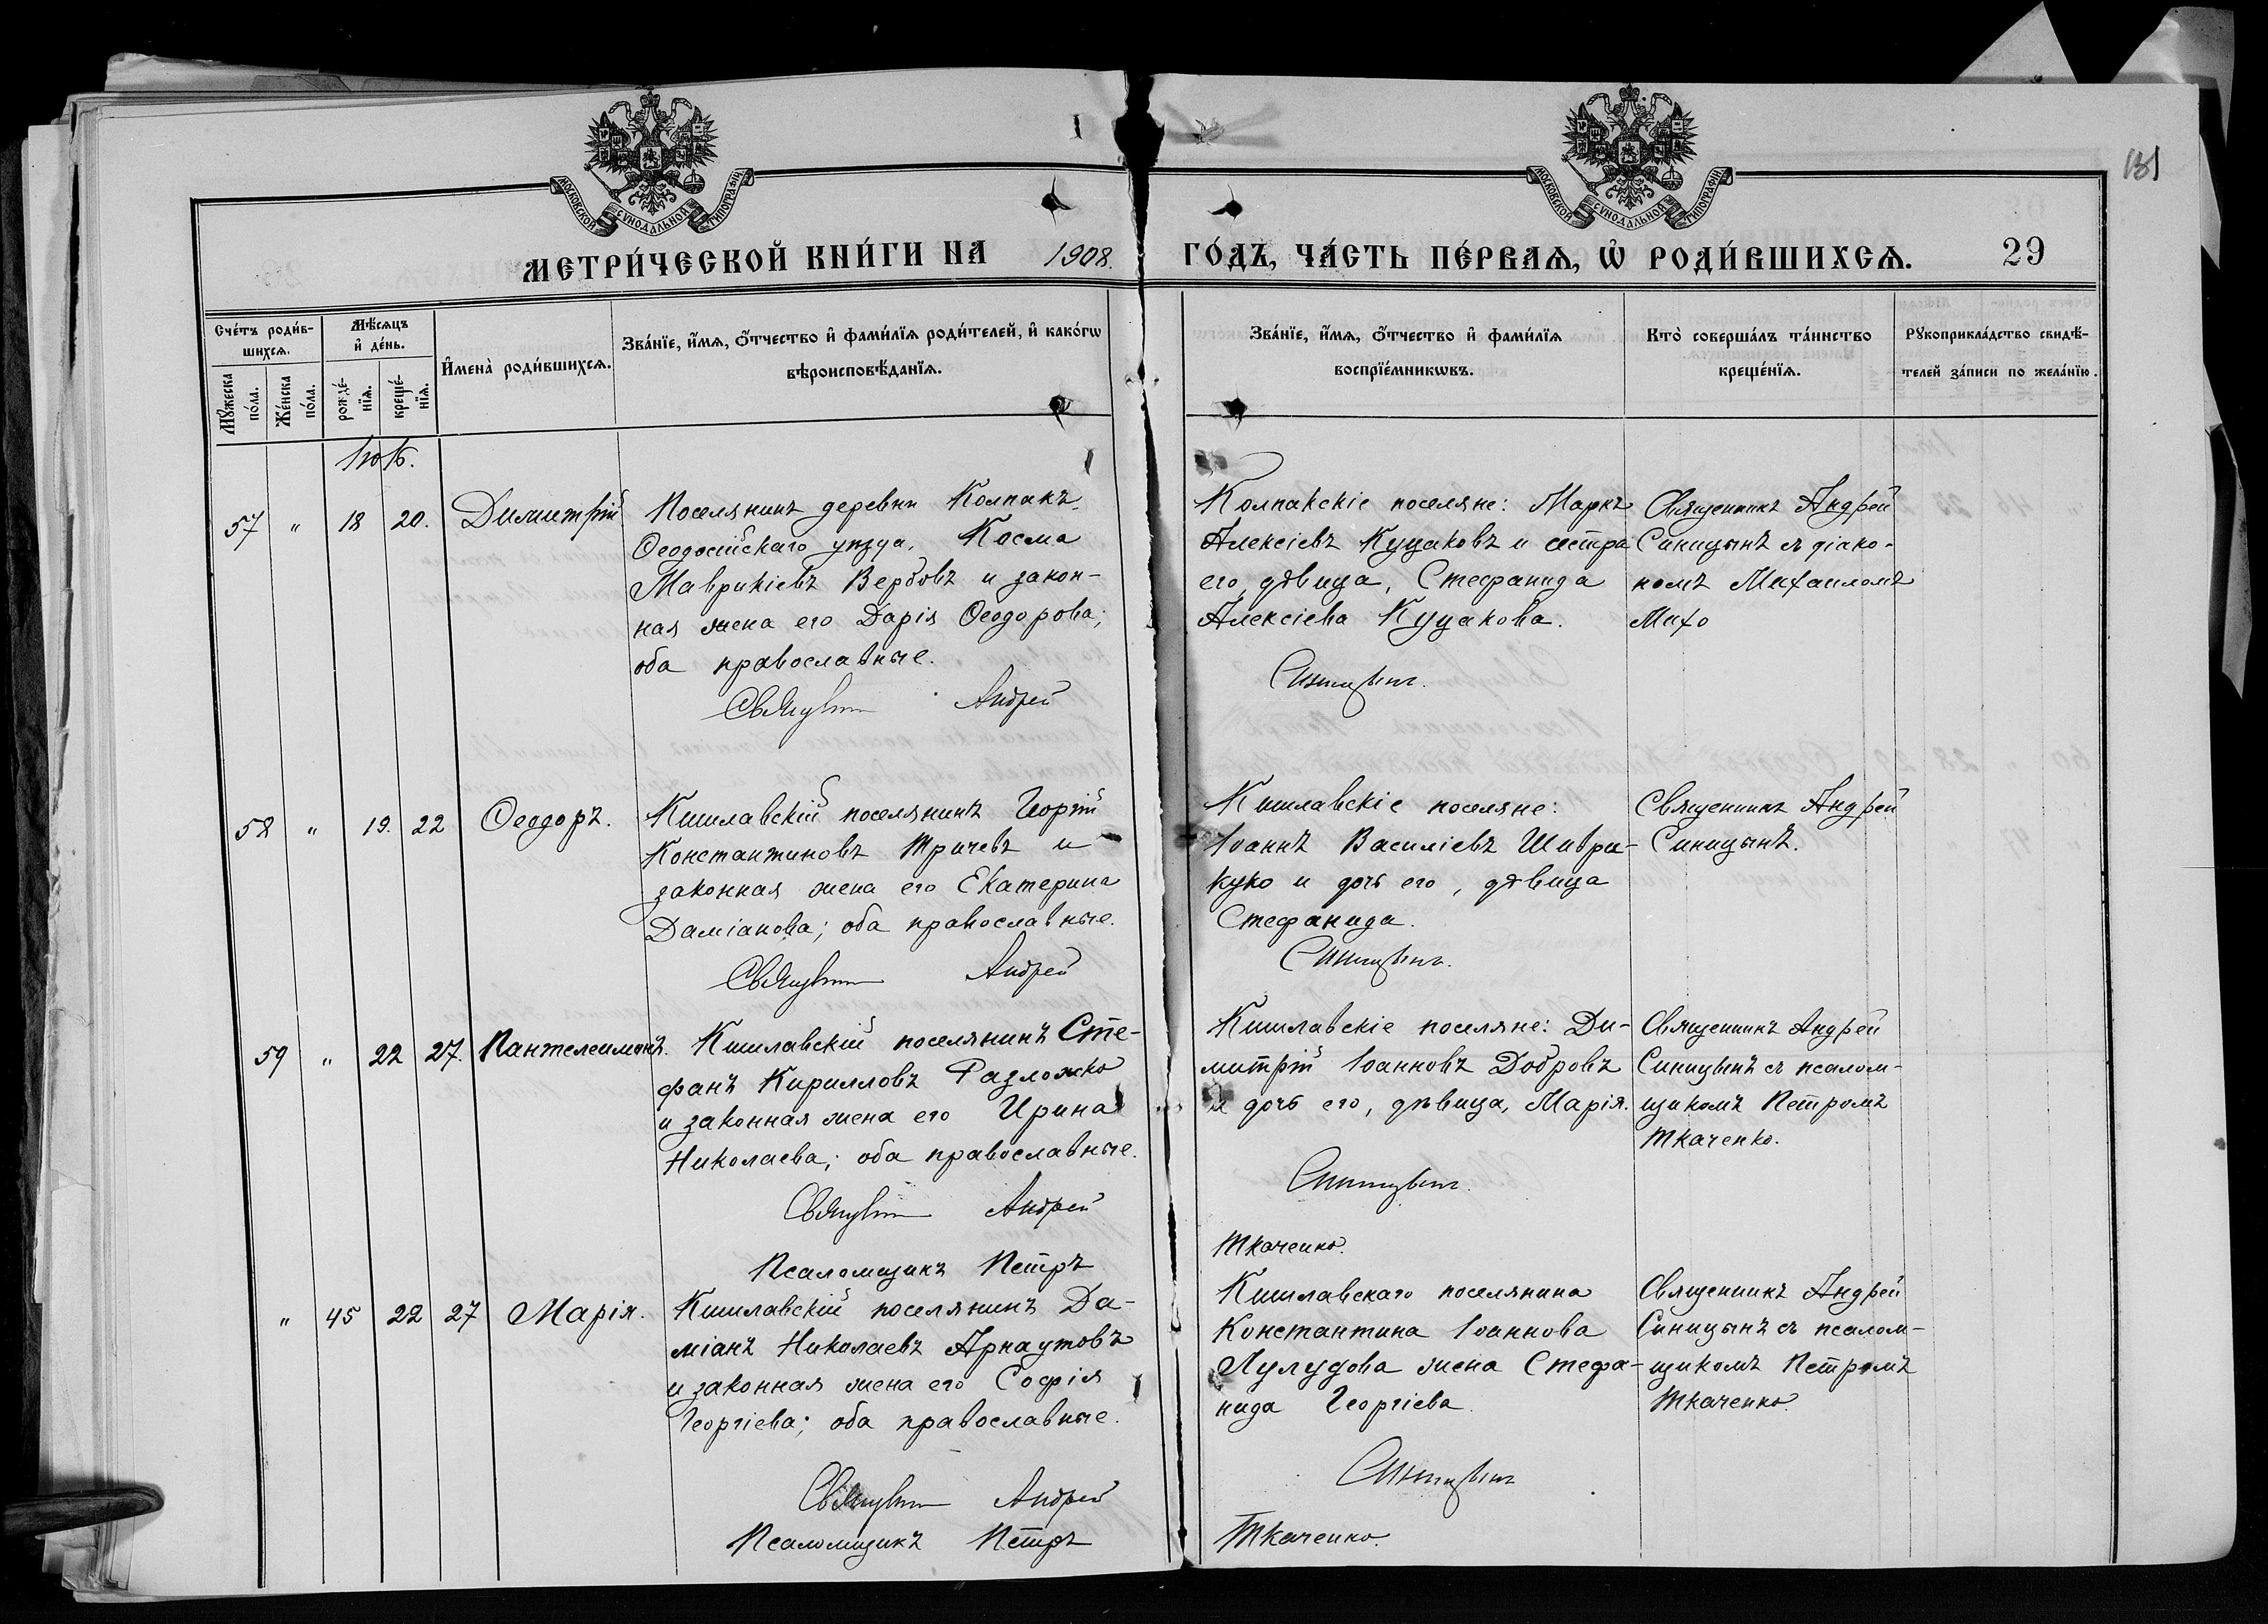 МОСКОВСКОЙ СѴНОДАЛЬНОЙ ТИПОГРАФІИ
МОСКОВСКОЙ СѴНОДАЛЬНОЙ ТИПОГРАФІИ
131
МЕТРИ́ЧЕСКОЙ КНИ́ГИ НА 1908. ГО́ДЪ, ЧА́СТЬ ПЕ́РВАѦ, Ѡ҆ РОДИ́ВШИХСѦ. 29
Сче́тъ роди́в-
шихсѧ.
Мꙋ́жеска по́ла.
Же́нска по́ла.
Мѣ́сѧцъ и҆ де́нь.
рожде́-нїѧ.
креще́-нїѧ.
И҆мена̀ роди́вшихсѧ.
Зва́нїе, и҆́мѧ, ѻ҆́тчество и҆ фами́лїѧ роди́телей, и҆ како́гѡ
вѣроисповѣ́данїѧ.
Зва́нїе, и҆́мѧ, ѻ҆́тчество и҆ фами́лїѧ
воспрїе́мникѡвъ.
Кто̀ соверша́лъ та́инство
креще́нїѧ.
Рꙋкоприкла́дство свидѣ́-
телей за́писи по жела́нїю.
57 " 18 20. Димитрій
Поселянинъ деревни Колпакъ,
Ѳеодосійскаго уѣзда, Косма
Маврикіевъ Вербовъ и закон-
ная жена его Дарія Ѳеодорова;
оба православные.
Священникъ Андрей
Колпакскіе поселяне: Маркъ
Алексіевъ Куцаковъ и сестра
его, дѣвица, Стефанида
Алексіева Куцакова.
Синицынъ.
Священникъ Андрей
Синицынъ съ діако-
номъ Михаиломъ
Михо
58 " 19. 22 Ѳеодоръ.
Кишлавскій поселянинъ Георгій
Константиновъ Тричевъ и
законная жена его Екатерина
Даміанова; оба православные.
Священникъ Андрей
Кишлавскіе поселяне:
Іоаннъ Василіевъ Шиври-
куко и дочь его, дѣвица
Стефанида.
Синицынъ.
Священникъ Андрей
Синицынъ.
59 " 22 27. Пантелеимонъ.
Кишлавскій поселянинъ Сте-
фанъ Кирилловъ Разложко
и законная жена его Ирина
Николаева; оба православные.
Священникъ Андрей
Псаломщикъ Петръ
Кишлавскіе поселяне: Ди-
митрій Іоанновъ Добровъ
и дочь его, дѣвица, Марія.
Синицынъ.
Ткаченко.
Священникъ Андрей
Синицынъ съ псалом-
щикомъ Петромъ
Ткаченко.
" 45 22 27 Марія.
Кишлавскій поселянинъ Да-
міанъ Николаевъ Арнаутовъ
и законная жена его Софія
Георгіева; оба православные.
Священникъ Андрей
Псаломщикъ Петръ
Кишлавскаго поселянина
Константина Іоаннова
Лулудова жена Стефа-
нида Георгіева.
Синицынъ
Ткаченко.
Священникъ Андрей
Синицынъ съ псалом-
щикомъ Петромъ
Ткаченко.